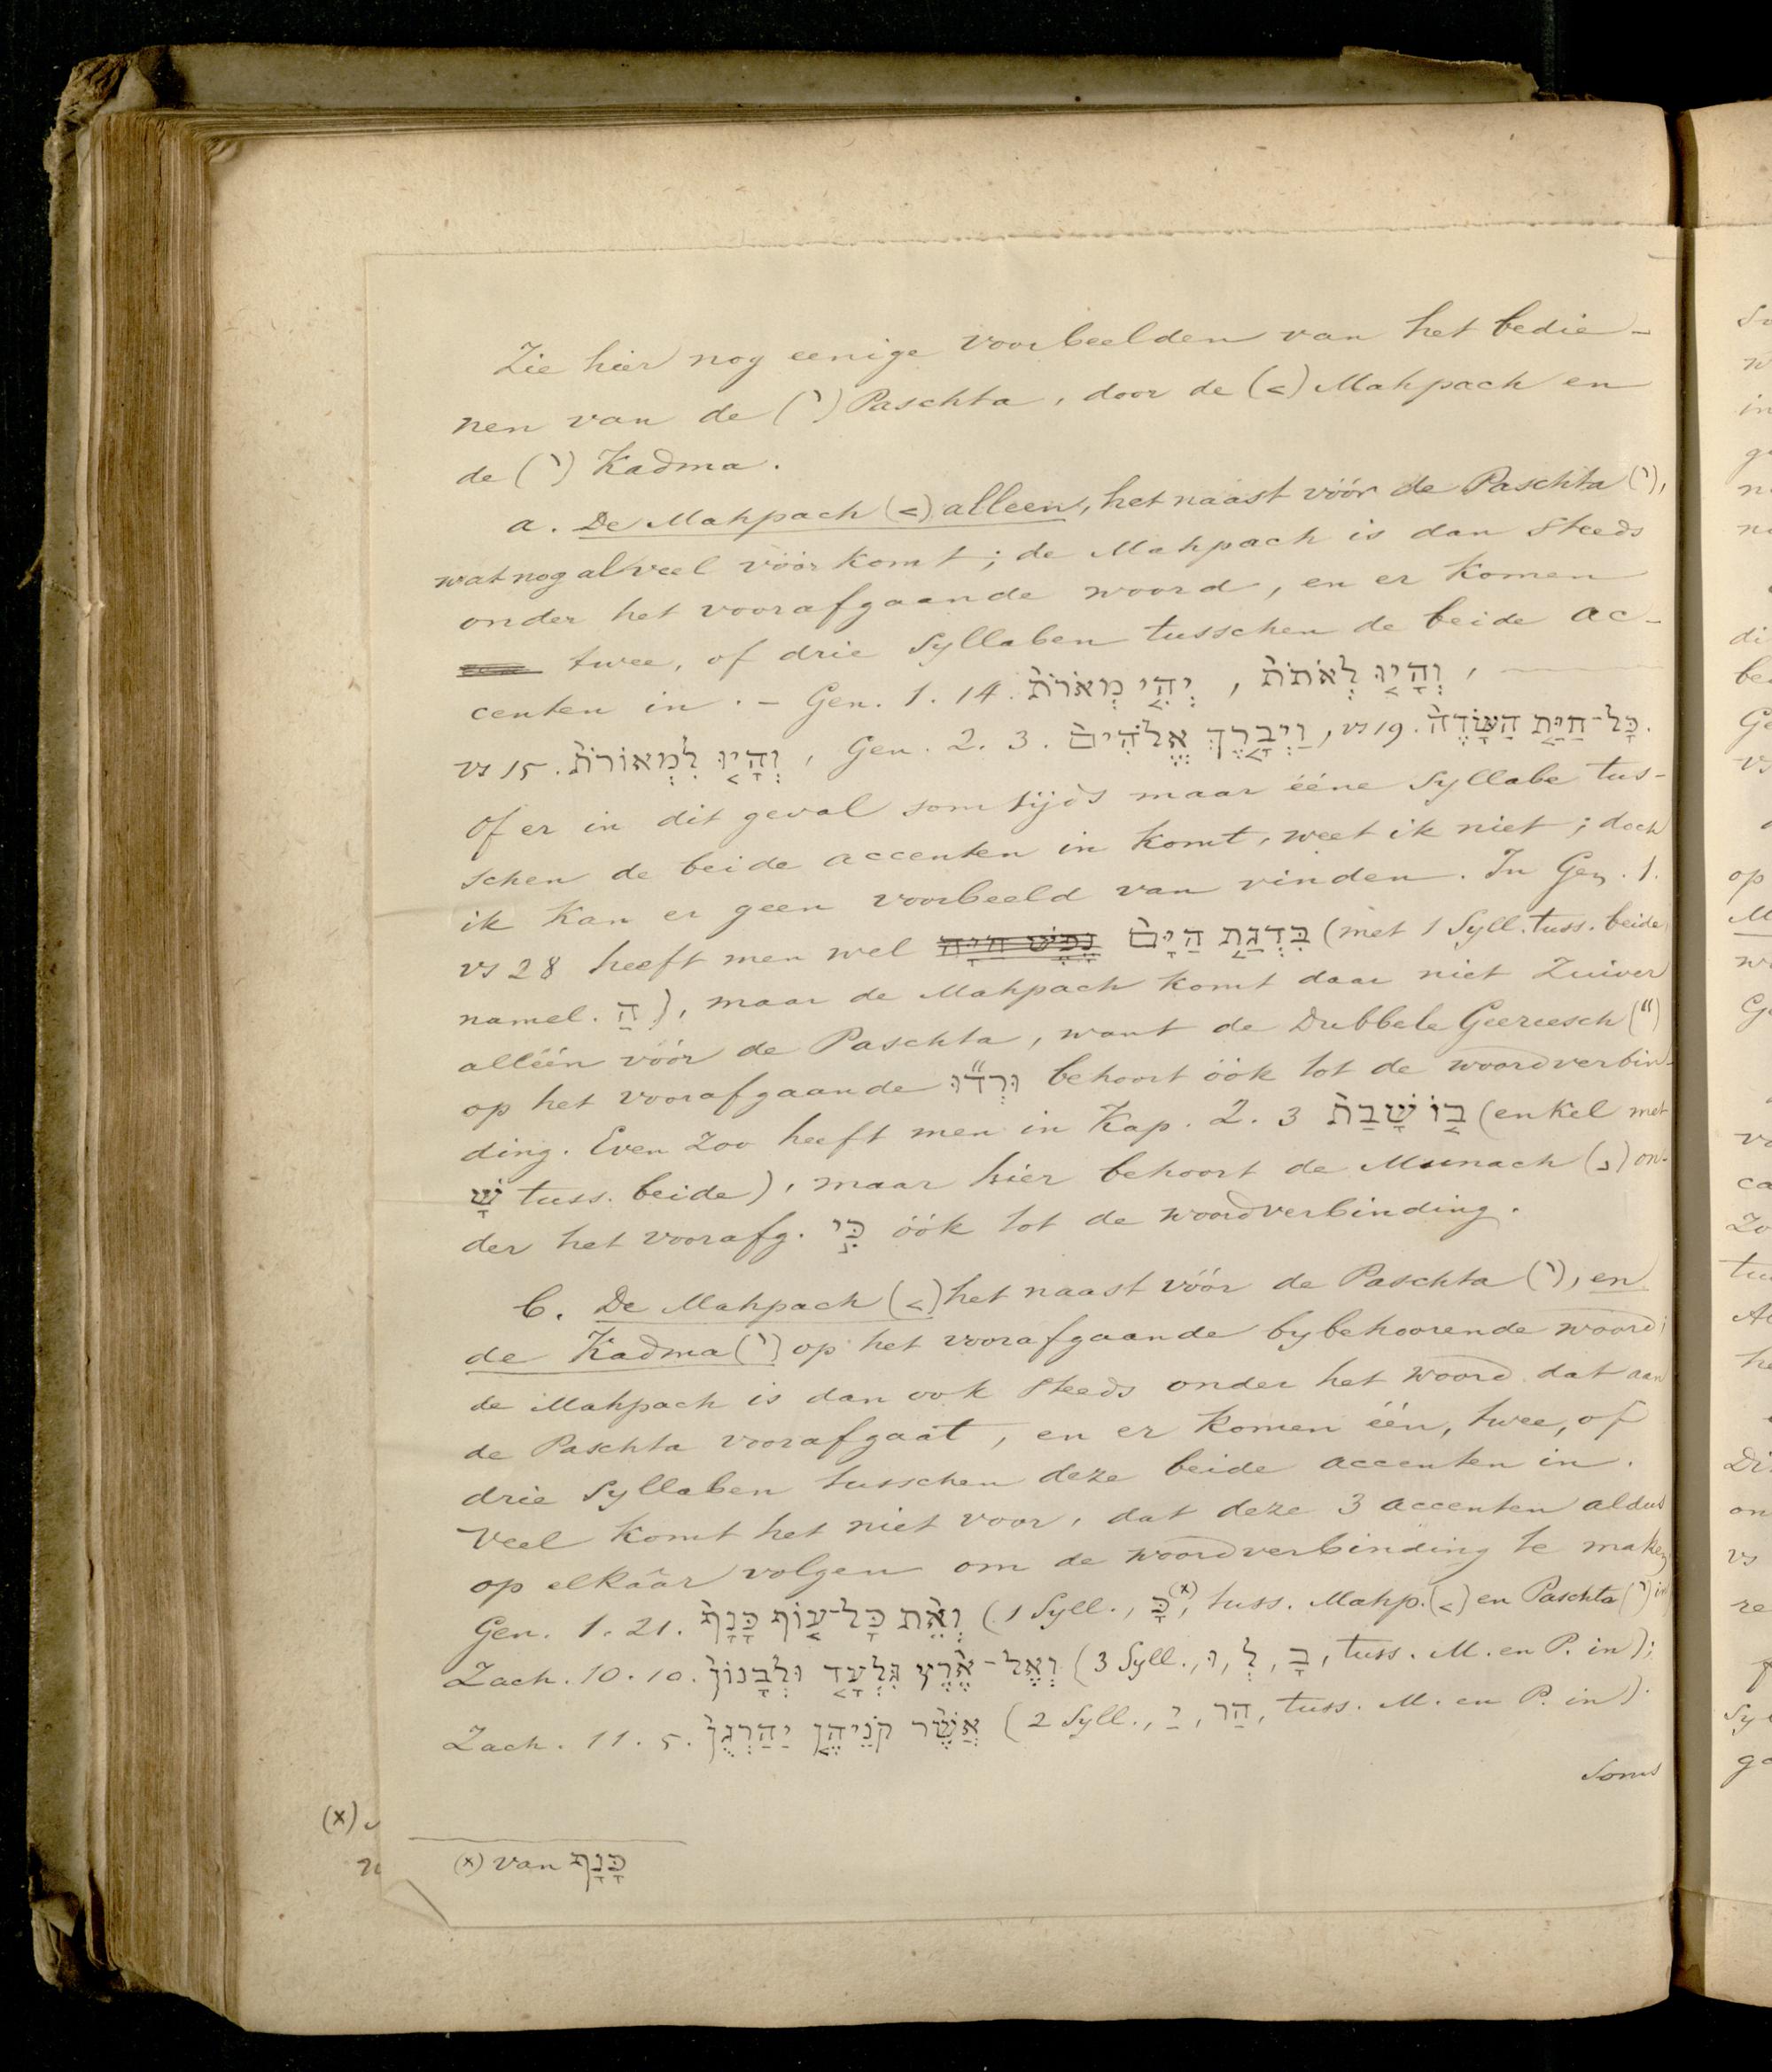 Zie hier nog eenige voorbeelden van het bedie-
nen van de (֙) Paschta, door de (֤) Mahpach en
de (֨) Kadma.
a. De Mahpach (֤) alleen, het naast vóór de Paschta (֙),
wat nog al veel vóórkomt; de Mahpach is dan steeds
onder het voorafgaande woord, en er komen
twee, of drie Syllaben tusschen de beide ac-
centen in. – Gen. 1. 14. יְהִ֤י מְאֹרֹת֙ , וְהָי֤וּ לְאֹתֹת֙ ,
vs 15. וְהָי֤וּ לִמְאוֹרֹת֙ , Gen. 2. 3. וַיְבָ֤רֶךְ אֱלֹהִים֙ , vs 19. כָּל־חַיַּ֤ת הַשָּׂדֶה֙.
Of er in dit geval somtijds maar ééne Syllabe tus-
schen de beide accenten in komt, weet ik niet; doch
ik kan er geen voorbeeld van vinden. In Gen. 1.
vs 28 heeft men wel נֶפֶשׁ חַיָּה בִּדְגַ֤ת הַיָּם֙ (met 1 Syll. tuss. beide
namel. הַ), maar de Mahpach komt daar niet zuiver
alléén vóór de Paschta, want de Dubbele Geereesch (֞)
op het voorafgaande וּרְד֞וּ behoort óók tot de woordverbin-
ding. Even zoo heeft men in Kap. 2. 3 ב֤וֹ שָׁבַת֙ (enkel met
שָׁ tuss. beide), maar hier behoort de Munach (֣) on-
der het voorafg. כִּ֣י óók tot de woordverbinding.
b. De Mahpach (֤) het naast vóór de Paschta (֙), en
de Kadma (֨) op het voorafgaande bybehoorende woord;
de Mahpach is dan ook steeds onder het woord dat aan
de Paschta voorafgaat, en er komen één, twee, of
drie Syllaben tusschen deze beide accenten in.
Veel komt het niet voor, dat deze 3 accenten aldus
op elkâar volgen om de woordverbinding te maken
Gen. 1. 21. וְאֵ֨ת כָּל־ע֤וֹף כָּנָף֙ (1 Syll., כָּ(x), tuss. Mahp. (֤) en Paschta (֙) in
Zach. 10. 10. וְאֶל־אֶ֨רֶץ גִּלְעָ֤ד וּלְבָנוֹן֙ (3 Syll., וּ, לְ, בָ, tuss. M. en P. in);
Zach. 11. 5. אֲשֶׁ֨ר קֹנֵיהֶ֤ן יַהַרְגֻן֙ (2 Syll., יַ, הַר, tuss. M. en P. in).
Soms
(x)
(x) van כָּנָף